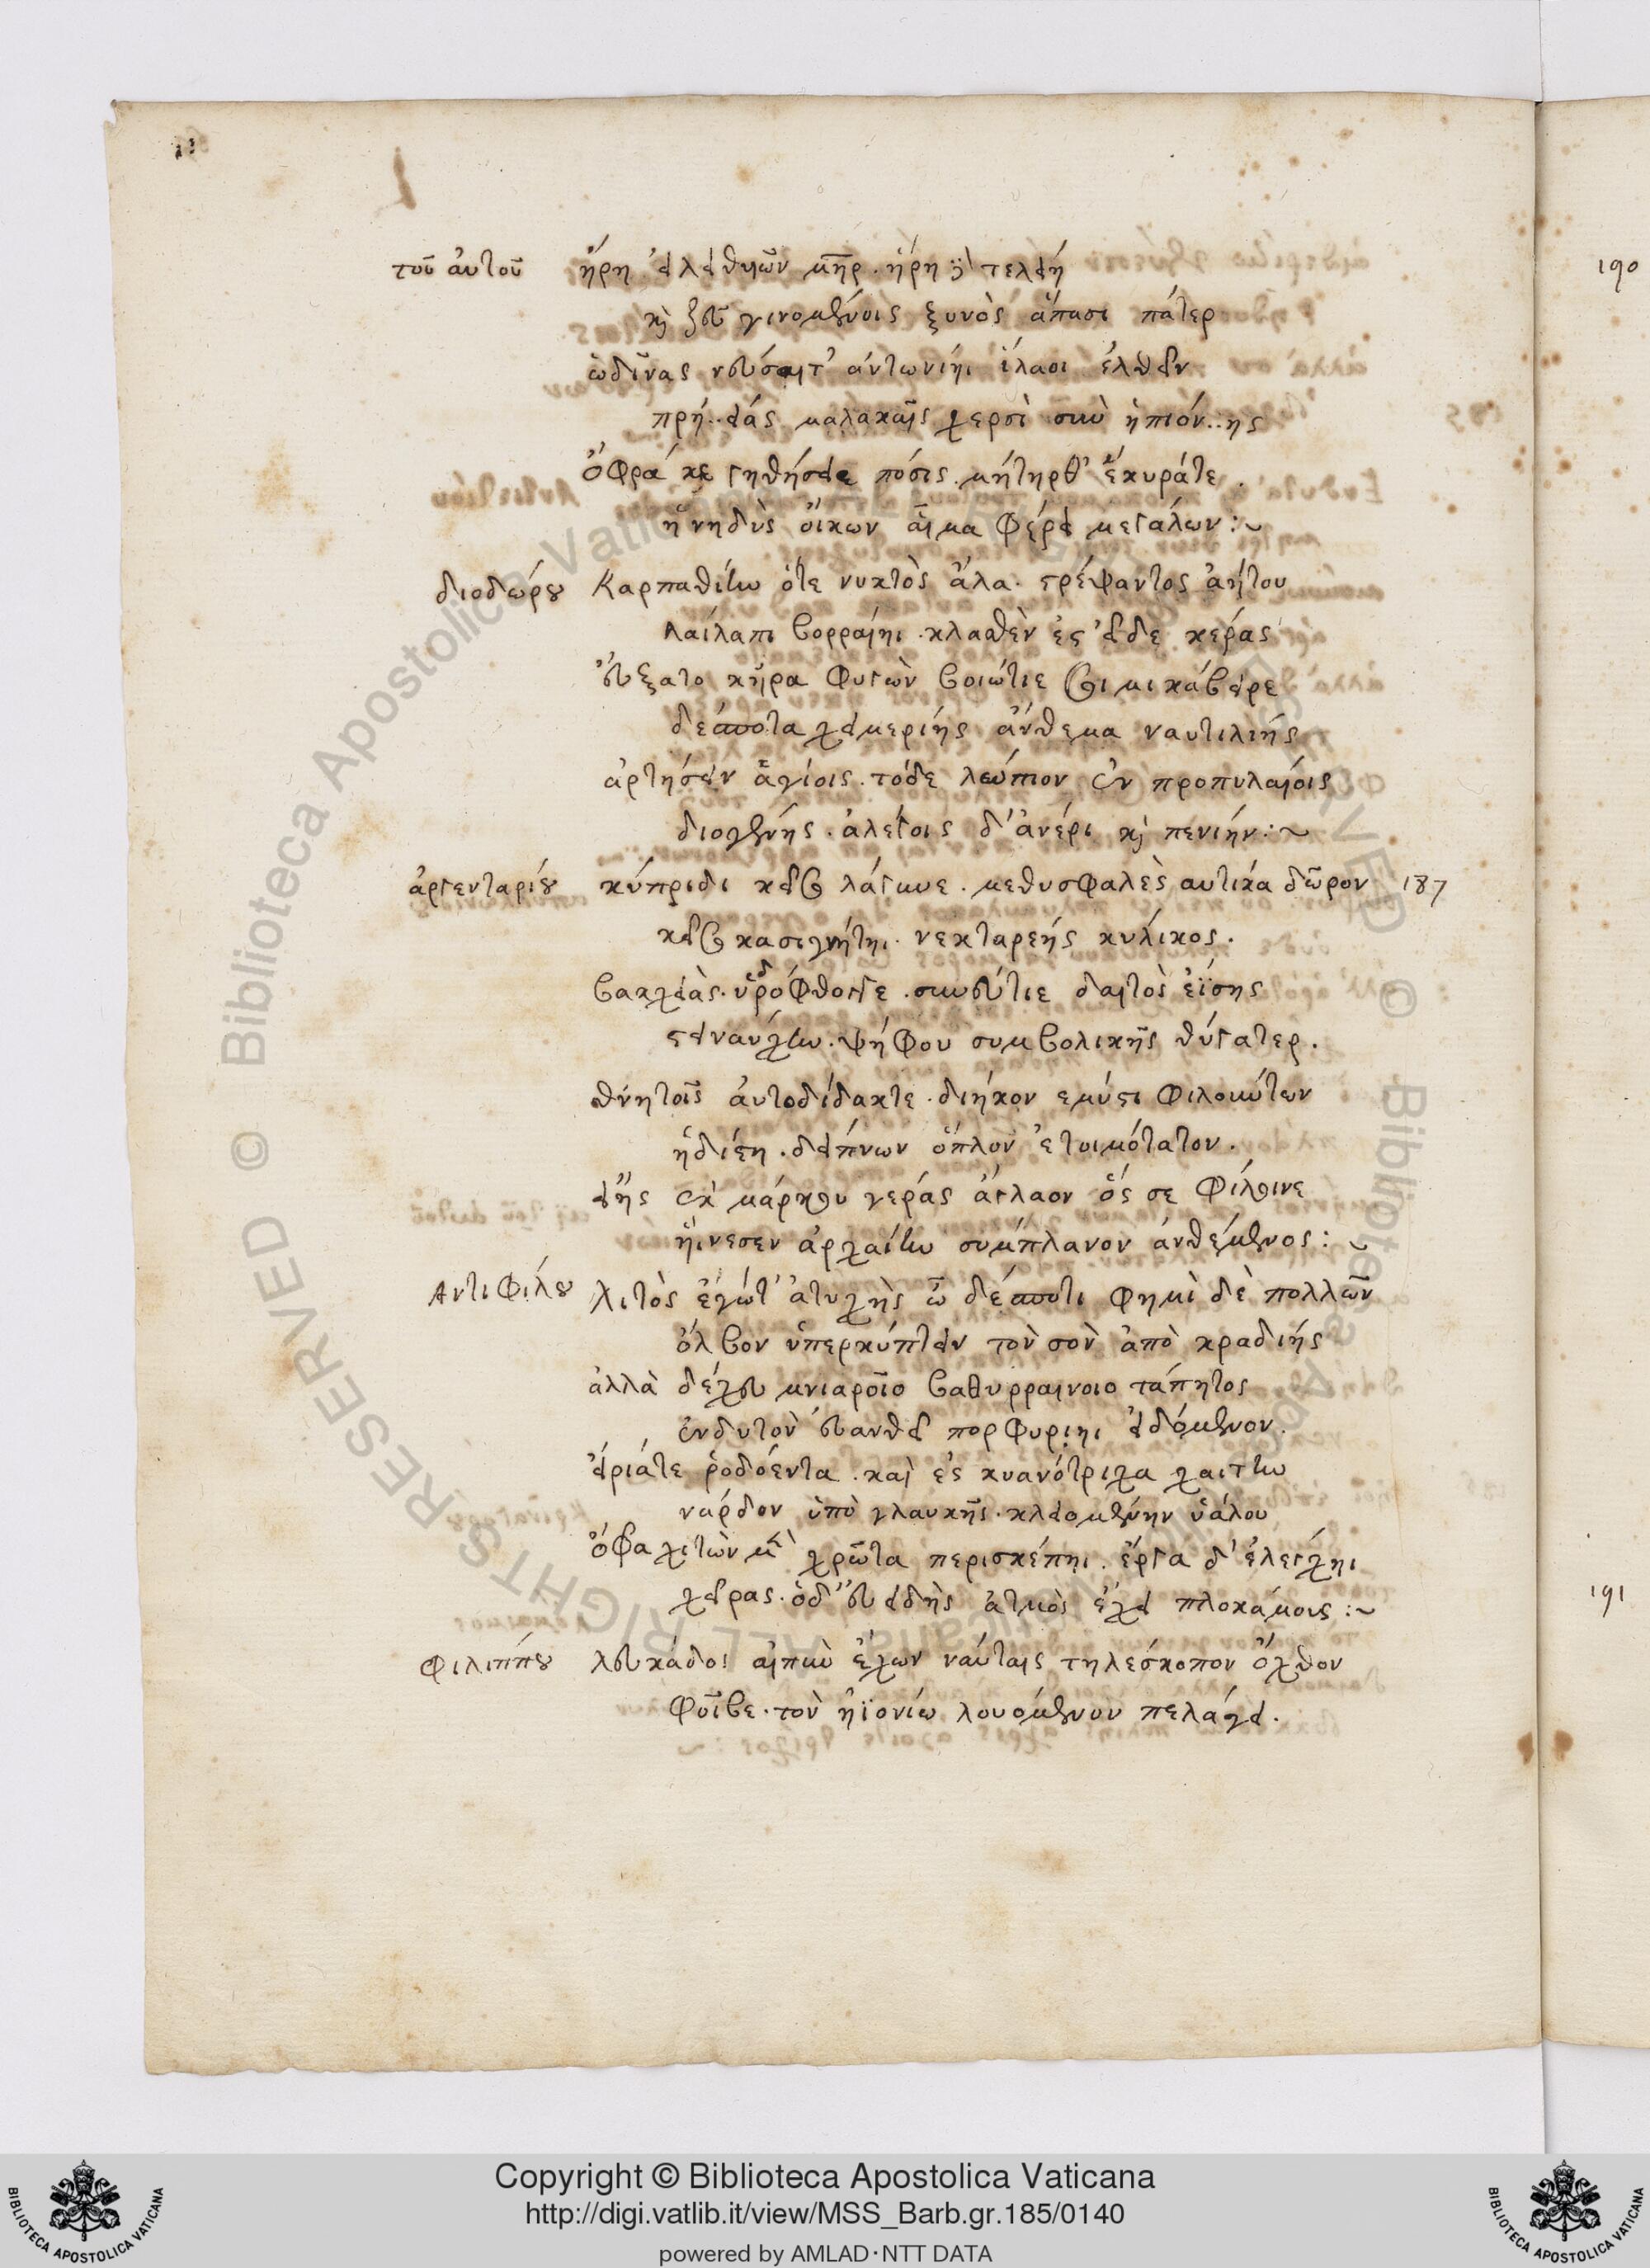 τοῦ ἀυτοῦ ἥρη ἐλειθυιῶν μῆτερ. ἥρη δὲ τελείη
καὶ ζεῦ γινομένοις ξυνὸς ἅπασι πάτερ
ὠδῖνας νεύσαιτ' ἀντωνίηι ἵλαοι ἐλθεῖν
πρή..είας μαλακαῖς χερσὶ σὺν ἠπιόν..ης
ὄφρά κε γηθήσειε πόσις. μήτηρθ' ἑκυράτε.
ἡ νηδὺς οἴκων αἷμα φέρει μεγάλων:~
διοδώρου Καρπαθίην ὁτε νυκτὸς ἅλα. στρέψαντος ἀήτου
λαίλαπι βορραίηι. κλασθὲν ἐσεῖδε κεράς
ἔυξατο κῆρα φυγὼν βοιώτιε σοί μι κάβειρε
δέσποτα χειμερίης ἄνθεμα ναυτιλίης
ἀρτήσειν ἁγίοις. τόδε λώπιον ἐν προπυλαίοις
διογένης. ἀλέγοις δ' ἀνέρι καὶ πενιήν:~
ἀργενταρίου κύπριδι κεῖσο λάγυνε. μεθυσφαλὲς αυτίκα δῶρον 187
κεῖσο κασιγνήτηι. νεκταρεής κυλίκος.
βακχειὰς. ὑδρόφθογγε. συνέυτιε δαιτὸς ἐΐσης
στειναύχην. ψήφου συμβολικῆς θύγατερ.
θνητοῖς ἀυτοδίδακτε. διήκον εμύστι φιλούντων
ἡδίστη. δείπνων ὅπλον ἑτοιμότατον.
εἴης ἐκ μάρκου γεράς ἀγλαον ὅς σε φίλοινε
ἤινεσεν ἀρχαίην συμπλανον ἀνθέμενος:~
Αντιφίλου λιτὸς ἐγώτ' ἀτυχὴς ὦ δέσποτι φημὶ δὲ πολλῶν
ὄλβον ὑπερκύπτειν τὸν σὸν ἀπὸ κραδιής
ἀλλὰ δέχευ μνιαροῖο βαθυρραινοιο τάπητος
ἐνδυτὸν ἐυανθεῖ πορφυριηι εἰδόμενον.
ἐίριάτε ῥοδόεντα. καὶ ἐς κυανότριχα χαιτην
νάρδον ὑπὸ γλαυκῆς. κλειομένην ὑάλου
ὄφα χιτὼν μὲν χρῶτα περισκέπηι. ἔργα δ' ἐλέγχηι
χεῖρας. ὁδ' ἐυειδὴς ἀτμὸς ἔχει πλοκάμους:~
φιλιππου λευκάδος αἰπὺν ἔχων ναύταις τηλέσκοπον ὄχθον
φοῖβε. τὸν ἠϊονίω λουόμενον πελάγει.
190
191
Copyright © Biblioteca Apostolica Vaticana
http://digi.vatlib.it/view/MSS_Barb.gr.185/0140
powered by AMLAD·NTT DATA